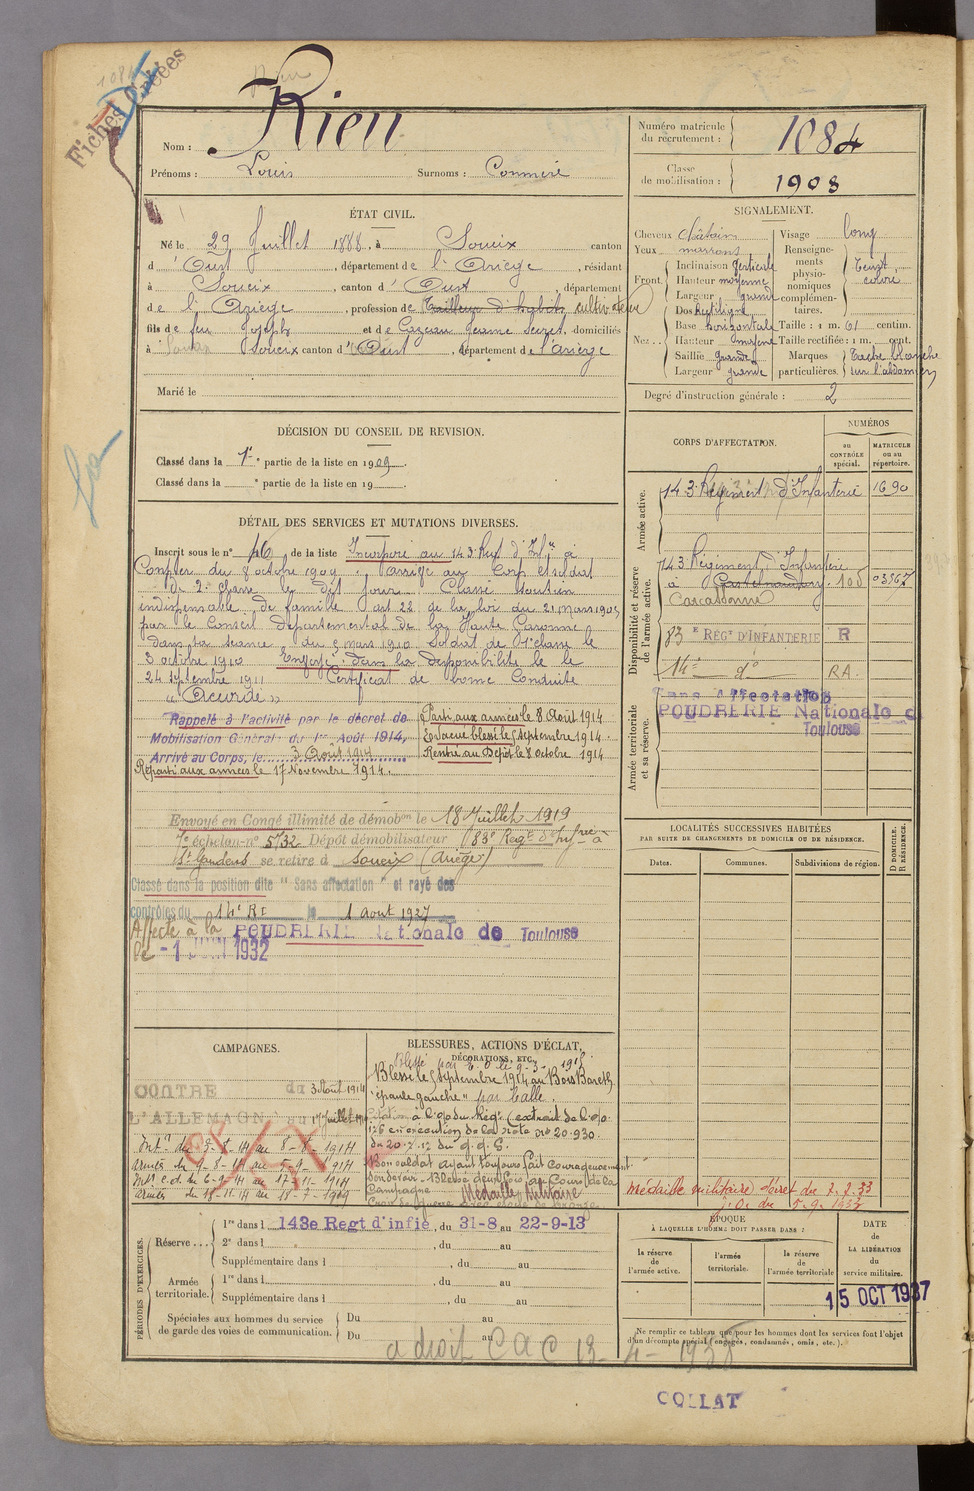 1084
Fiches Créées
Nom : Rieu
Prénoms : Louis Surnoms :
Numéro matricule du recrutement : 1084
Classe de mobilisation : 1908
ÉTAT CIVIL.
Né le 29 Juillet 1888, à Soueix canton
d'Oust, département de l'Ariège, résidant
à Soueix, canton d'Oust, département
de l'Ariège, profession de Tailleur d'habits cultivateur
fils de feu Joseph et de Cazeau Jeanne domiciliés
à Soueix canton d'Oust, département de l'ariège
Marié le
SIGNALEMENT.
Cheveux Chatain
Yeux marrons
Front. Inclinaison Verticale
Hauteur moyenne
Largeur grande
Nez... Dos Rectiligne
Base horizontale
Hauteur moyenne
Saillie grande
Largeur grande
Visage long
Renseignements physionomiques complémentaires. Teint coloré
Taille : 1 m. 61 centim.
Taille rectifiée : 1 m. cent.
Marques particulières. Tache blanche sur l'abdomen
Degré d'instruction générale : 2
DÉCISION DU CONSEIL DE REVISION.
Classé dans la 1re partie de la liste en 1909.
Classé dans la e partie de la liste en 19
DÉTAIL DES SERVICES ET MUTATIONS DIVERSES.
Inscrit sous le n° 46 de la liste Incorporé au 143e Regt d'Infie à
Compter du 8 octobre 1909. Arrivé au Corps et soldat
de 2e classe le dit jour. Classé soutien
indispensable de famille art 22 de la loi du 21 mars 1905
par le Conseil départemental de la Haute Garonne
dans sa séance du 5 mars 1910. Soldat de 1e classe le
8 octobre 1910 Envoyé dans la disponibilité le
24 septembre 1911 Certificat de bonne Conduite
"Accordé"
Rappelé à l'activité par le décret de
Mobilisation Générale du 1er Août 1914,
Arrivé au Corps, le 3 Août 1914
Parti aux armées le 8 Août 1914
Evacué blessé le 5 septembre 1914.
Rentré au Dépôt le 8 octobre 1914
Reparti aux armées le 17 Novembre 1914.
Envoyé en Congé illimité de démobon le 18 Juillet 1919
7e échelon n° 5732 Dépôt démobilisateur 83e Regt d'Infrie à
St Gaudens se retire à Soueix (Ariège)
Classé dans la position dite "Sans affectation" et rayé des
contrôles du 14e RI le 1 aout 1927
Affecté à la POUDRERIE Nationale de Toulouse
le - 1 JUIN 1932
CORPS D'AFFECTATION.
NUMÉROS
au CONTRÔLE spécial.
MATRICULE ou au répertoire.
Armée active.
143e Régiment d'Infanterie 1690
Disponibilité et réserve de l'armée active.
143 Régiment d'Infanterie
à Castelnaudary 105 03567
Carcassonne
83e REGt D'INFANTERIE R
14e do RA.
Armée territoriale et sa réserve.
Sans Affectation
POUDRERIE Nationale de
Toulouse
LOCALITÉS SUCCESSIVES HABITÉES
PAR SUITE DE CHANGEMENTS DE DOMICILE OU DE RÉSIDENCE.
Dates. Communes. Subdivisions de région. D DOMICILE. R RÉSIDENCE.
CAMPAGNES.
CONTRE du 3 Août 1914
L'ALLEMAGNE au 17 Juillet 1919
Intr du 3-8-14 au 8-8-1914
armées du 9-8-14 au 5-9-1914
Intr c.d. du 6-9-14 au 17-11-1914
armées du 18-11-14 au 18-7-1919
BLESSURES, ACTIONS D'ÉCLAT, DÉCORATIONS, ETC.
Blessé le 5 septembre 1914 au Bois Bareth
"épaule gauche" par balle.
Citation à l'o/ du Régt (extrait de l'o/
176 en execution de la note n° 20.930
du 20.7.17 du G.Q.G.
Bon soldat ayant toujours fait courageusement
son devoir. Blessé deux fois au Cours de la
Campagne. Médaille Militaire
Croix de guerre avec étoile de bronze.
Médaille militaire décret du 2.2.33
J.O. du 5.9.1933
PÉRIODES D'EXERCICES.
Réserve... 1re dans l 143e Regt d'infie, du 31-8 au 22-9-13
2e dans l , du au
Supplémentaire dans l , du au
Armée territoriale. 1re dans l , du au
Supplémentaire dans l , du au
Spéciales aux hommes du service de garde des voies de communication. Du au
Du au
ÉPOQUE
À LAQUELLE L'HOMME DOIT PASSER DANS :
la réserve de l'armée active.
l'armée territoriale.
la réserve de l'armée territoriale
DATE de LA LIBÉRATION du service militaire.
15 OCT 1937
Ne remplir ce tableau que pour les hommes dont les services font l'objet
d'un décompte spécial (engagés, condamnés, omis, etc.).
a droit C a C 13-4-1938
COLLAT